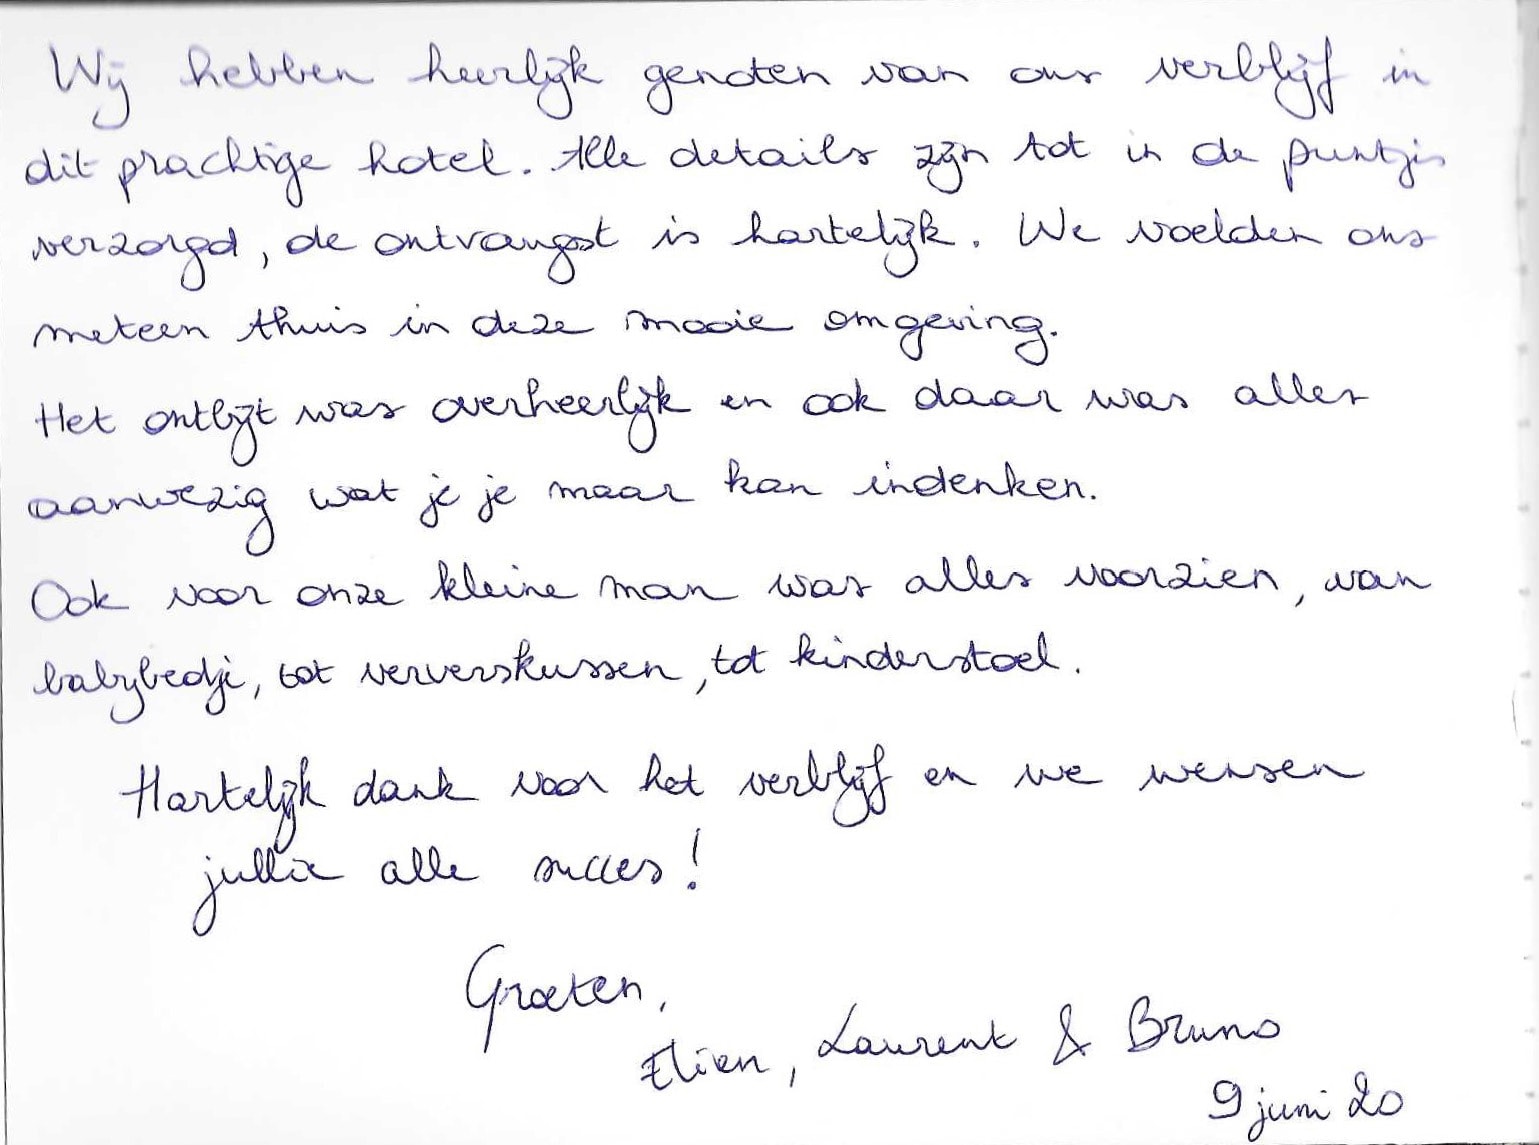 Wij hebben heerlijk genoten van ons verblijf in
dit prachtige hotel. Alle details zijn tot in de puntjes
verzorgd, de ontvangst is hartelijk. We voelden ons
meteen thuis in deze mooie omgeving.
Het ontbijt was overheerlijk en ook daar was alles
aanwezig wat je je maar kan indenken.
Ook voor onze kleine man was alles voorzien, van
babybedje, tot ververskussen, tot kinderstoel.
Hartelijk dank voor het verblijf en we wensen
jullie alle succes!
Groeten,
Elien, Laurent & Bruno
9 juni 20